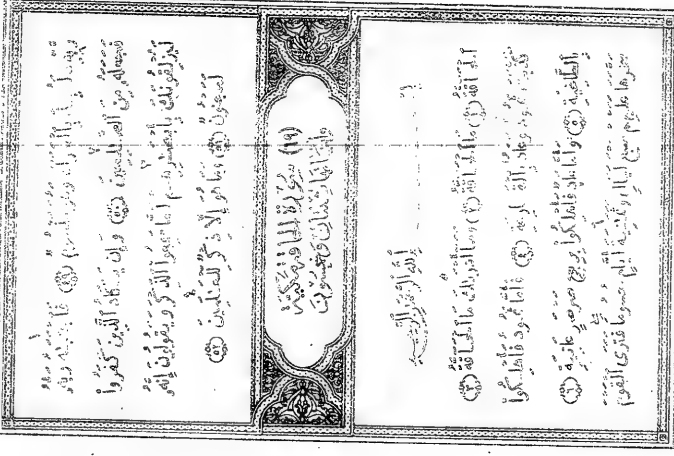 ربه لنبذ بالعراء وهو مذموم (٤٩) فاجتبه ربه
فجعله من الصلحين (٥٠) وإن يكاد الذين كفروا
ليزلقونك بأبصرهم لما سمعوا الذكر ويقولون إنه
لمجنون (٥١) وما هو إلا ذكر للعلمين (٥٢)
(٦٩) سورة الحاقة مكية
وآياتها ثنتان وخمسون
الله الرحمن الرحيم
الحاقة (١) ما الحاقة (٢) وما أدرىك ما الحاقة (٣)
كذبت ثمود وعاد بالقارعة (٤) فأما ثمود فأهلكوا
بالطاغية (٥) وأما عاد فأهلكوا بريح صرصر عاتية (٦)
سخرها عليهم سبع ليال وثمنية أيام حسوما فترى القوم